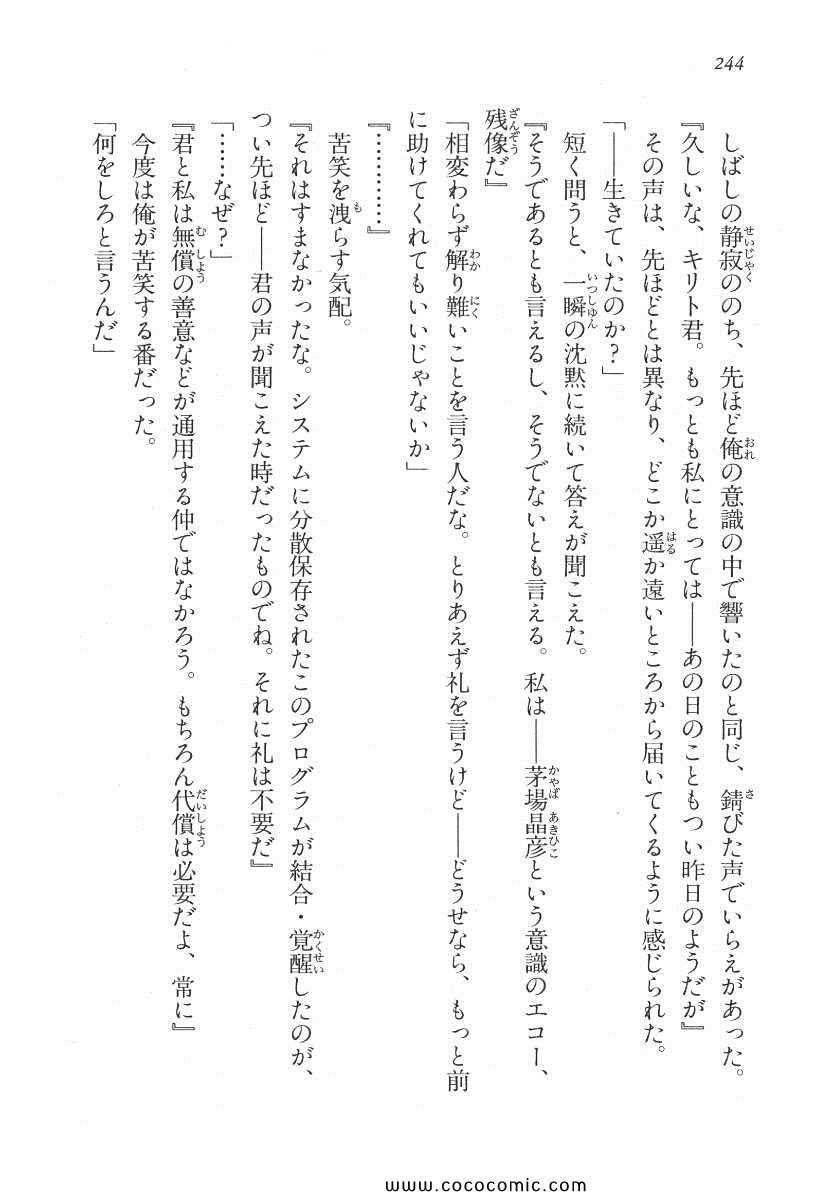 244
しばしの静寂ののち、先ほど俺の意識の中で響いたのと同じ、錆びた声でいらえがあった。
『久しいな、キリト君。もっとも私にとっては――あの日のこともつい昨日のようだが』
その声は、先ほどとは異なり、どこか遥か遠いところから届いてくるように感じられた。
「――生きていたのか？」
短く問うと、一瞬の沈黙に続いて答えが聞こえた。
『そうであるとも言えるし、そうでないとも言える。私は――茅場晶彦という意識のエコー、
残像だ』
「相変わらず解り難いことを言う人だな。とりあえず礼を言うけど――どうせなら、もっと前
に助けてくれてもいいじゃないか」
『…………』
苦笑を洩らす気配。
『それはすまなかったな。システムに分散保存されたこのプログラムが結合・覚醒したのが、
つい先ほど――君の声が聞こえた時だったものでね。それに礼は不要だ』
「……なぜ？」
『君と私は無償の善意などが通用する仲ではなかろう。もちろん代償は必要だよ、常に』
今度は俺が苦笑する番だった。
「何をしろと言うんだ」
www.cococomic.com